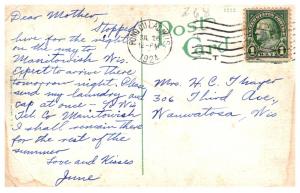 Dear Mother, Stopped
here for the night
on the way to
Manitowish Wis.
Expect to arrive there
tomorrow night. Please
send my laundry and
cap at once. To Wis
Manitowish
I shall remain there
for the rest of the
summer
Love and Kisses
June
Post
Card
1924
Mrs. H. C. Thayer
306 Third Ave,
Wauwatosa,
Wis;
1